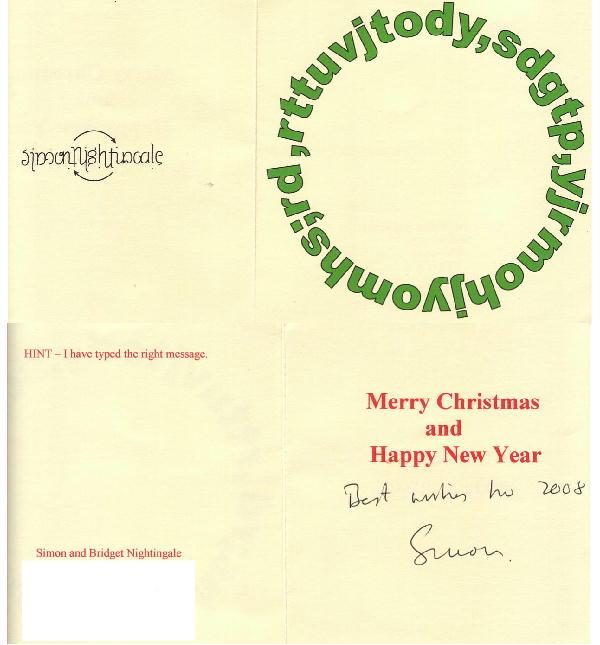 simonNightingale
,rttuvjtody,sdgtp,yjrmohjyomhs;rd
HINT – I have typed the right message.
Merry Christmas
and
Happy New Year
Best wishes for 2008
Simon.
Simon and Bridget Nightingale